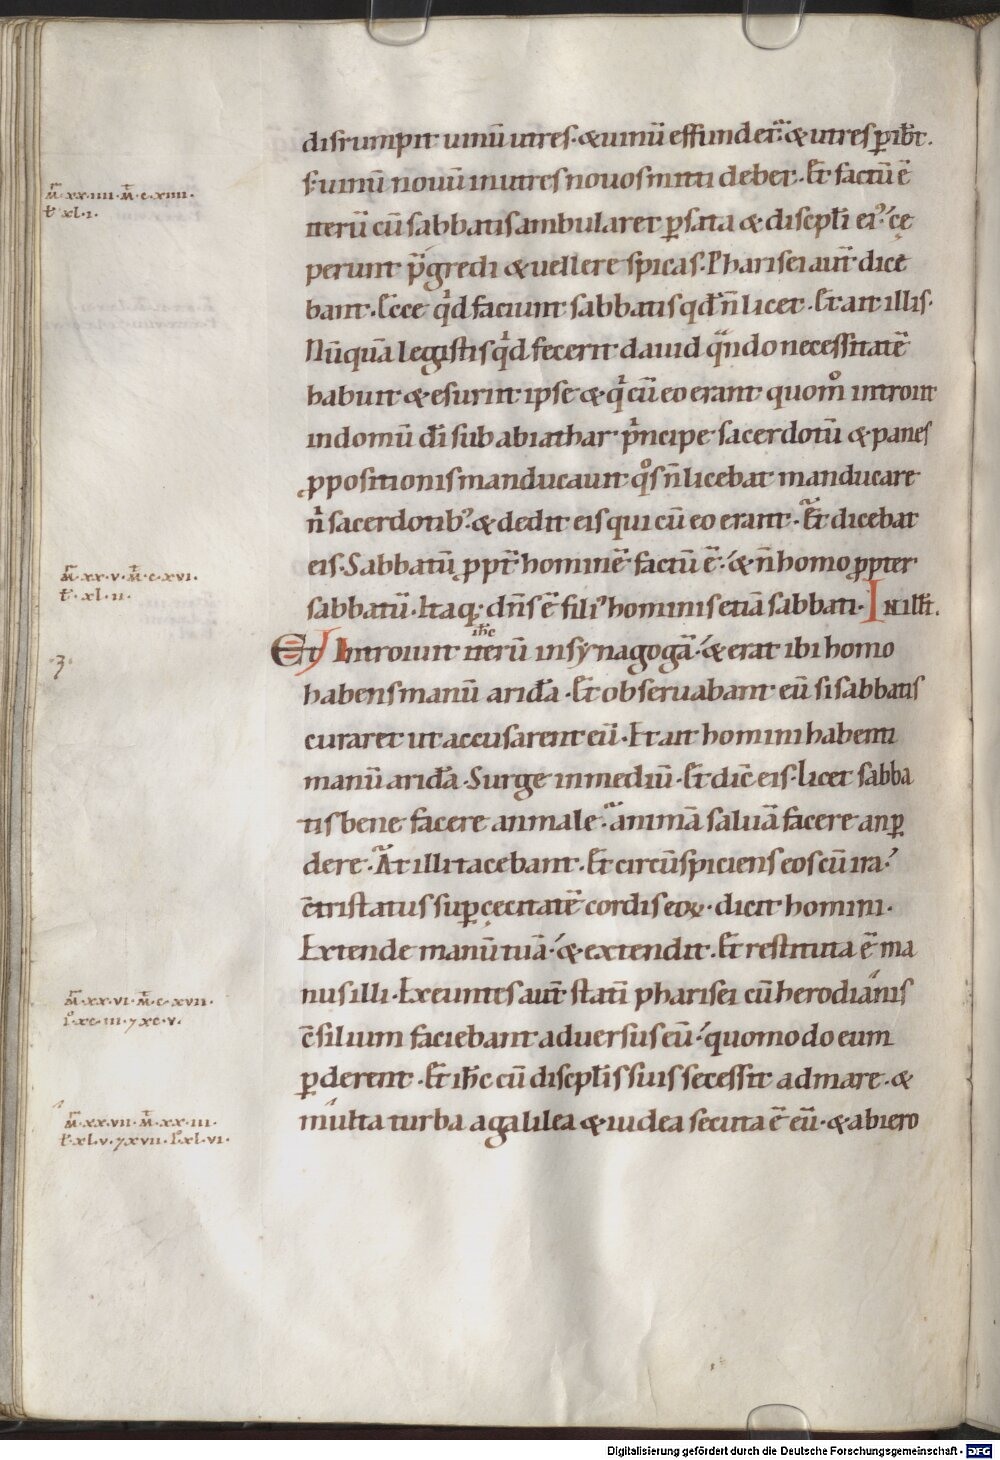 disrumpit uinū utres·&uinū effundet̄·& utres ꝑib̄t.
s;uinū nouū inutres nouos mitti debet·Et factū ē
iterū cū sabbatis ambularet ꝑ sata & discipl̄i ei᾽ cę
perunt p̄gredi & uellere spicas·Pharisei aut̄ dice
bant·Ecce qͥd faciunt sabbatis qd̄ n̄ licet·Et ait illis·
Nūquā legistis qͥd fecerit dauid qͣndo necessitatē
habuit & esuriit ipse & qͥ cū eo erant quom̊ introiit
in domū dī sub abiathar pͥncipe sacerdotū & panes
ꝓpositionis manducauit qͦs n̄ licebat manducare
nͥ sacerdotib᾽·& dedit eis qui cū eo erant·Et dicebat
eis·Sabbatū ꝓpt̄ hominē factū ē·& n̄ homo ꝓpter
sabbatū·Itaq; dn̄s ē fili᾽ hominis etiā sabbati· In ill̄t.
Et Introiuit iterū ih̄c in synagogā·& erat ibi homo
habens manū aridā·Et obseruabant eū si sabbatis
curaret ut accusarent eū·Et ait homini habenti
manū aridā·Surge in mediū·Et dic̄ eis·Licet sabba
tis bene facere an male·animā saluā facere an ꝑ
dere·At illi tacebant·Et circūspiciens eos cū ira·
c̄tristatus suꝑ cęcitatē cordis eoꝝ·dicit homini·
Extende manū tuā·& extendit·Et restituta ē ma
nus illi·Exeuntes aut̄ statī pharisei cū herodianis
c̄silium faciebant aduersus eū·quomodo eum
ꝑderent·Et ih̄c cū discipl̄is suis secessit ad mare·&
multa turba a galilea & iudea secuta ē eū·& ab iero
M̄·xx·iiii·M̄·c·xiiii·
L̄·xl·i·
M̄·xx·v·M̄·c·xvi·
L̄·xl·ii·
·3·
M̄·xx·vi·M̄·c·xvii·
I̊·xc·iii·⁊xc·v·
M̄·xx·vii·M̄·xx·iii·
L̄·xl·v·⁊xvii·I̊·xl·vi·
Digitalisierung gefördert durch die Deutsche Forschungsgemeinschaft - DFG